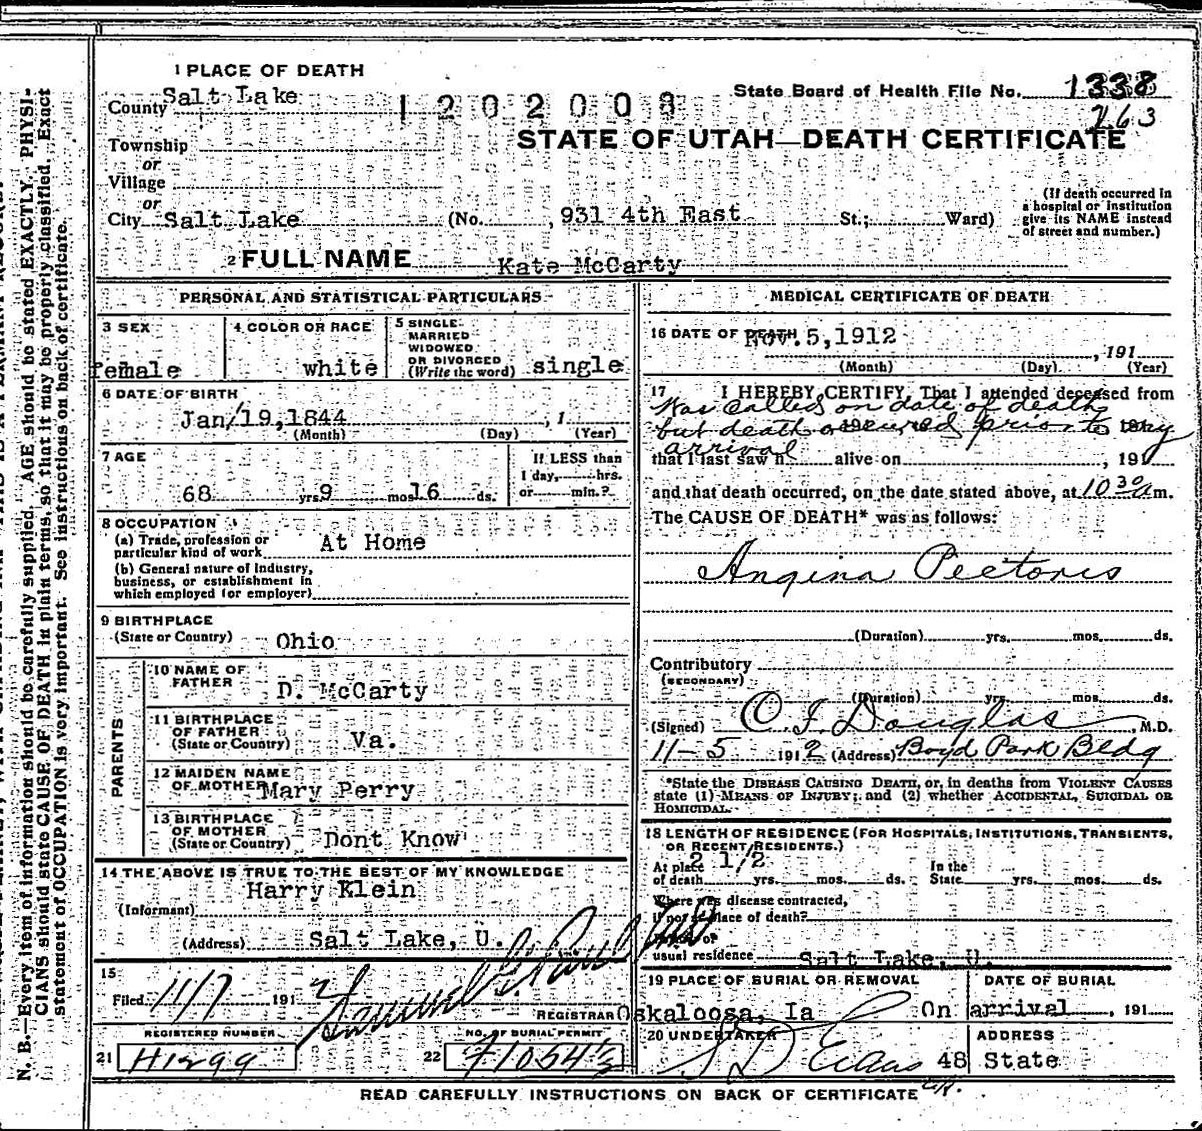 N. B.—Every item of information should be carefully supplied. AGE should be stated EXACTLY. PHYSI-
CIANS should state CAUSE OF DEATH in plain terms, so that it may be properly classified. Exact
statement of OCCUPATION is very important. See instructions on back of certificate.
1 PLACE OF DEATH
County Salt Lake
1202008
State Board of Health File No. 1338
263
STATE OF UTAH—DEATH CERTIFICATE
Township
or
Village
or
City Salt Lake (No. , 931 4th East St.; Ward)
(If death occurred in
a hospital or institution
give its NAME instead
of street and number.)
2 FULL NAME Kate McCarty
PERSONAL AND STATISTICAL PARTICULARS
3 SEX
female
4 COLOR OR RACE
white
5 SINGLE
MARRIED
WIDOWED
OR DIVORCED
(Write the word) single
6 DATE OF BIRTH
Jan/19,1844 , 1
(Month) (Day) (Year)
7 AGE
68 yrs. 9 mos. 16 ds.
If LESS than
1 day, hrs.
or min.?
8 OCCUPATION
(a) Trade, profession or
particular kind of work At Home
(b) General nature of Industry,
business, or establishment in
which employed (or employer)
9 BIRTHPLACE
(State or Country) Ohio
PARENTS
10 NAME OF
FATHER D. McCarty
11 BIRTHPLACE
OF FATHER
(State or Country) Va.
12 MAIDEN NAME
OF MOTHER Mary Perry
13 BIRTHPLACE
OF MOTHER
(State or Country) Dont Know
14 THE ABOVE IS TRUE TO THE BEST OF MY KNOWLEDGE
Harry Klein
(Informant)
(Address) Salt Lake, U.
15
Filed 11/7 191 2
REGISTRAR
REGISTERED NUMBER
21 H1299
NO. OF BURIAL PERMIT
22
MEDICAL CERTIFICATE OF DEATH
16 DATE OF DEATH Nov. 5,1912
, 191
(Month) (Day) (Year)
17 I HEREBY CERTIFY, That I attended deceased from
Was called on date of death
but death occured prior to my
arrival
that I last saw h alive on , 191
and that death occurred, on the date stated above, at 10 30 a m.
The CAUSE OF DEATH* was as follows:
Angina Pectoris
(Duration) yrs. mos. ds.
Contributory
(SECONDARY)
(Duration) yrs. mos. ds.
(Signed) O. J. Douglas, M.D.
11-5 191 2 (Address) Boyd Park Bldg
*State the DISEASE CAUSING DEATH, or, in deaths from VIOLENT CAUSES
state (1) MEANS OF INJURY; and (2) whether ACCIDENTAL, SUICIDAL OR
HOMICIDAL.
18 LENGTH OF RESIDENCE (FOR HOSPITALS, INSTITUTIONS, TRANSIENTS,
OR RECENT RESIDENTS.)
At place 2 1/2 In the
of death yrs. mos. ds. State yrs. mos. ds.
Where was disease contracted,
if not at place of death?
usual residence Salt Lake, U.
19 PLACE OF BURIAL OR REMOVAL
Oskaloosa, Ia
DATE OF BURIAL
On arrival , 191
20 UNDERTAKER
S D Evans
ADDRESS
48 State
READ CAREFULLY INSTRUCTIONS ON BACK OF CERTIFICATE